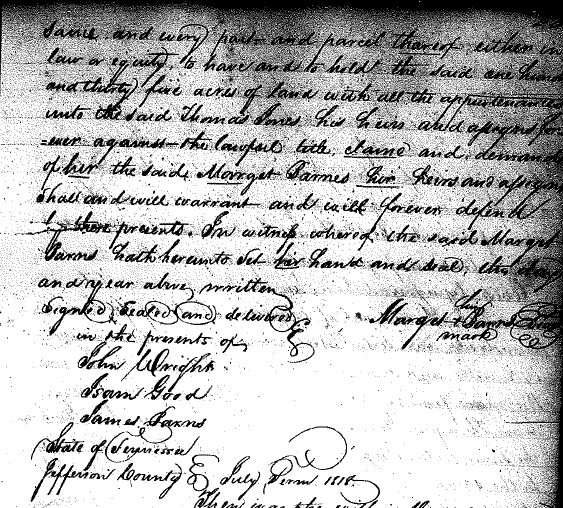 same and every part and parcel thareof either in
law or equity to have and to hold the said one hund
and thirty five acres of land with all the appurtenances
unto the said Thomas Jones his heirs and assigns for=
=ever against the lawful title claime and demand
of her the said Marget Farnes her heirs and assigns
shall and will warrant and will forever defend
by these presents. In witness whereof the said Marget
Farns hath hereunto set her hand and seal, the day
and year above written
Signed, Sealed and delivered
in the presents of
Marget + Farns Seal
mark
John Wright
Isam Good
James Farns
State of Tennessee
Jefferson County July Term 1818
Then was the